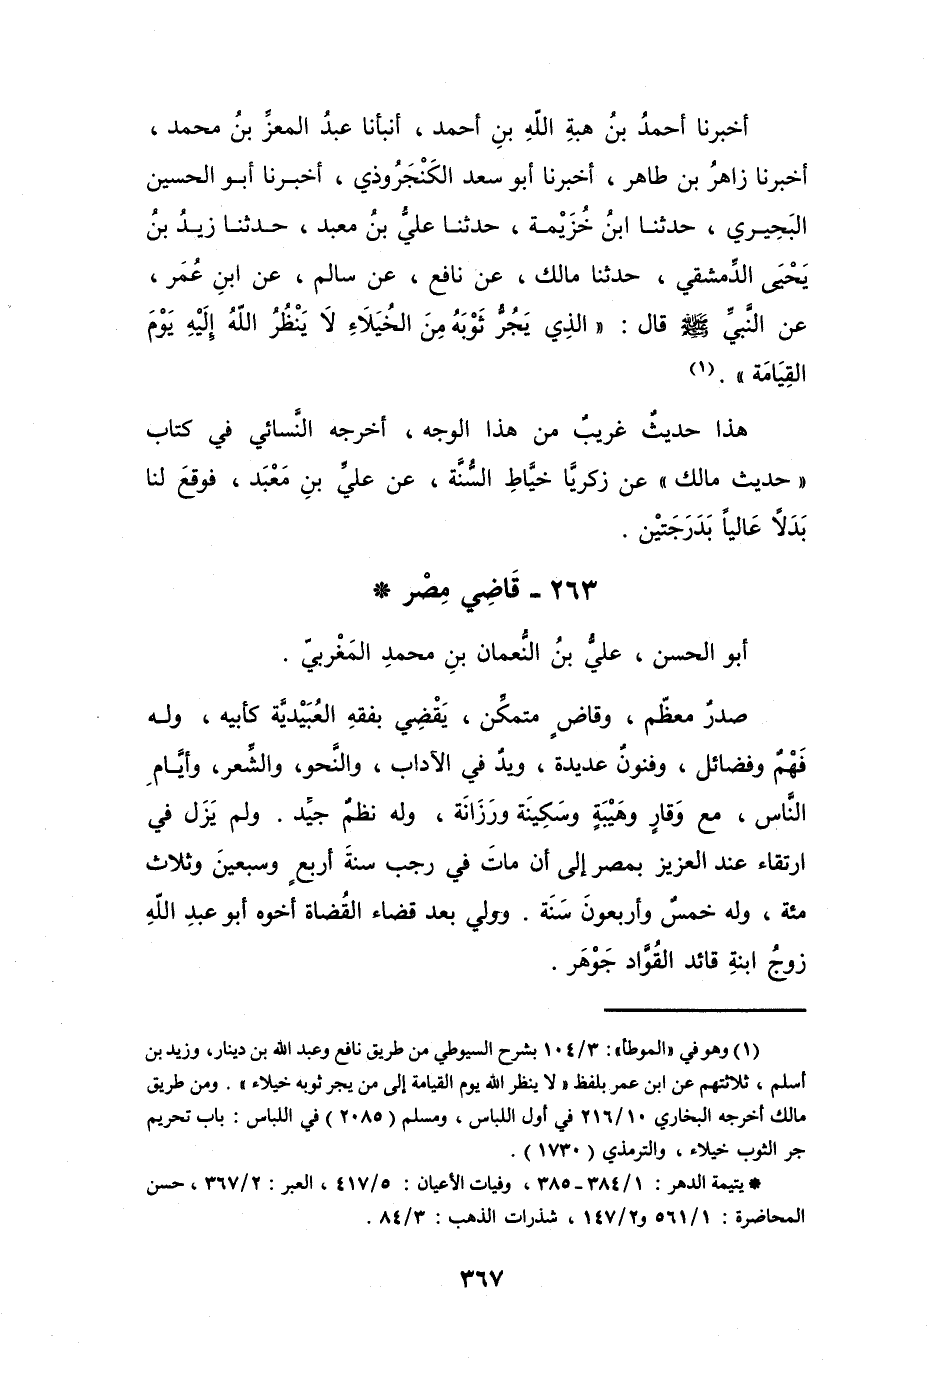 أخبرنا أحمدُ بنُ هبةِ اللّهِ بنِ أحمد ، أنبأنا عبدُ المعزِّ بنُ محمد ،
أخبرنا زاهرُ بن طاهر ، أخبرنا أبو سعد الكَنْجَرُوذي ، أخبرنا أبو الحسين
البَحِيري ، حدثنا ابنُ خُزَيْمة ، حدثنا عليُّ بنُ معبد ، حدثنا زيدُ بنُ
يَحْيَى الدِّمشقي ، حدثنا مالك ، عن نافع ، عن سالم ، عن ابنِ عُمَر ،
عن النَّبيِّ ﷺ قال : « الذِي يَجُرُّ ثَوْبَهُ مِنَ الخُيَلَاءِ لَا يَنْظُرُ اللّهُ إِلَيْهِ يَوْمَ
القِيَامَة » . (١)
هذا حديثٌ غريبٌ من هذا الوجه ، أخرجه النَّسائي في كتاب
« حديث مالك » عن زكريَّا خيَّاطِ السُّنَّة ، عن عليِّ بنِ مَعْبَد ، فوقعَ لنا
بَدَلاً عَالياً بَدَرَجَتيْن .
٢٦٣ - قَاضِي مِصْر *
أبو الحسن ، عليُّ بنُ النُّعمان بنِ محمدِ المَغْربيّ .
صدرٌ معظّم ، وقاضٍ متمكِّن ، يَقْضِي بفقهِ العُبَيْديَّة كأبيه ، وله
فَهْمٌ وفضائل ، وفنونٌ عديدة ، ويدٌ في الآداب ، والنَّحو، والشِّعر، وأيَّامِ
النَّاس ، مع وَقارٍ وهَيْبَةٍ وسَكِينَة ورَزَانَة ، وله نظمٌ جيِّد . ولم يَزَل في
ارتقاء عند العزيز بمصر إلى أن ماتَ في رجب سنةَ أربعٍ وسبعينَ وثلاث
مئة ، وله خمسٌ وأربعونَ سَنَة . وولي بعد قضاء القُضاة أخوه أبو عبدِ اللّهِ
زوجُ ابنةِ قائد القُوَّاد جَوْهَر .
(١) وهو في «الموطأ»: ١٠٤/٣ بشرح السيوطي من طريق نافع وعبد الله بن دينار، وزيد بن
أسلم ، ثلاثتهم عن ابن عمر بلفظ « لا ينظر الله يوم القيامة إلى من يجر ثوبه خيلاء » . ومن طريق
مالك أخرجه البخاري ٢١٦/١٠ في أول اللباس ، ومسلم ( ٢٠٨٥ ) في اللباس : باب تحريم
جر الثوب خيلاء ، والترمذي ( ١٧٣٠ ) .
* يتيمة الدهر : ٣٨٤/١ - ٣٨٥ ، وفيات الأعيان : ٤١٧/٥ ، العبر : ٣٦٧/٢ ، حسن
المحاضرة : ٥٦١/١ و١٤٧/٢ ، شذرات الذهب : ٨٤/٣ .
٣٦٧